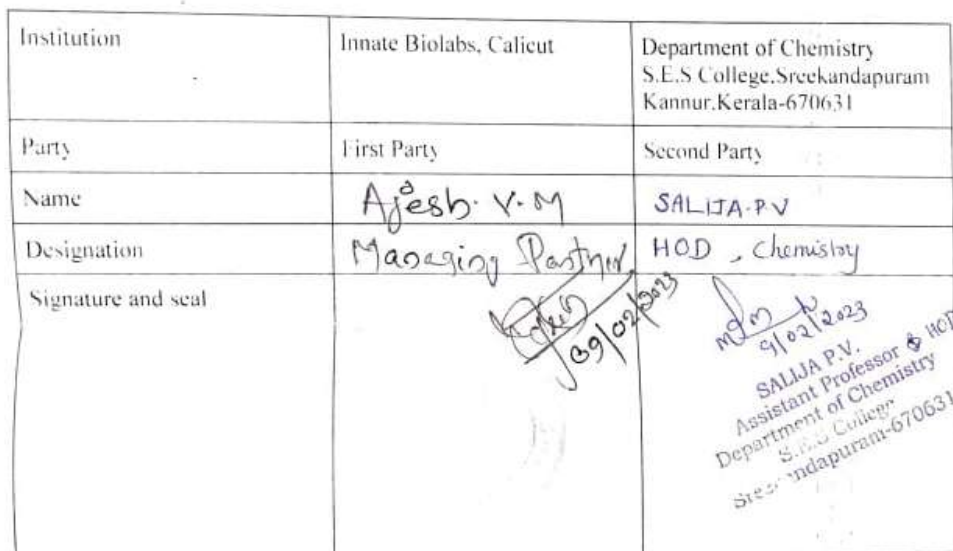 Institution
Innate Biolabs, Calicut
Department of Chemistry
S.E.S College,Sreekandapuram
Kannur,Kerala-670631
Party
First Party
Second Party
Name
Ajesh. V. M
SALIJA.P.V
Designation
Managing Partner
HOD , Chemistry
Signature and seal
09/02/2023
9/02/2023
SALIJA P.V.
Assistant Professor & HOD
Department of Chemistry
S.E.S College
Sreekandapuram-670631